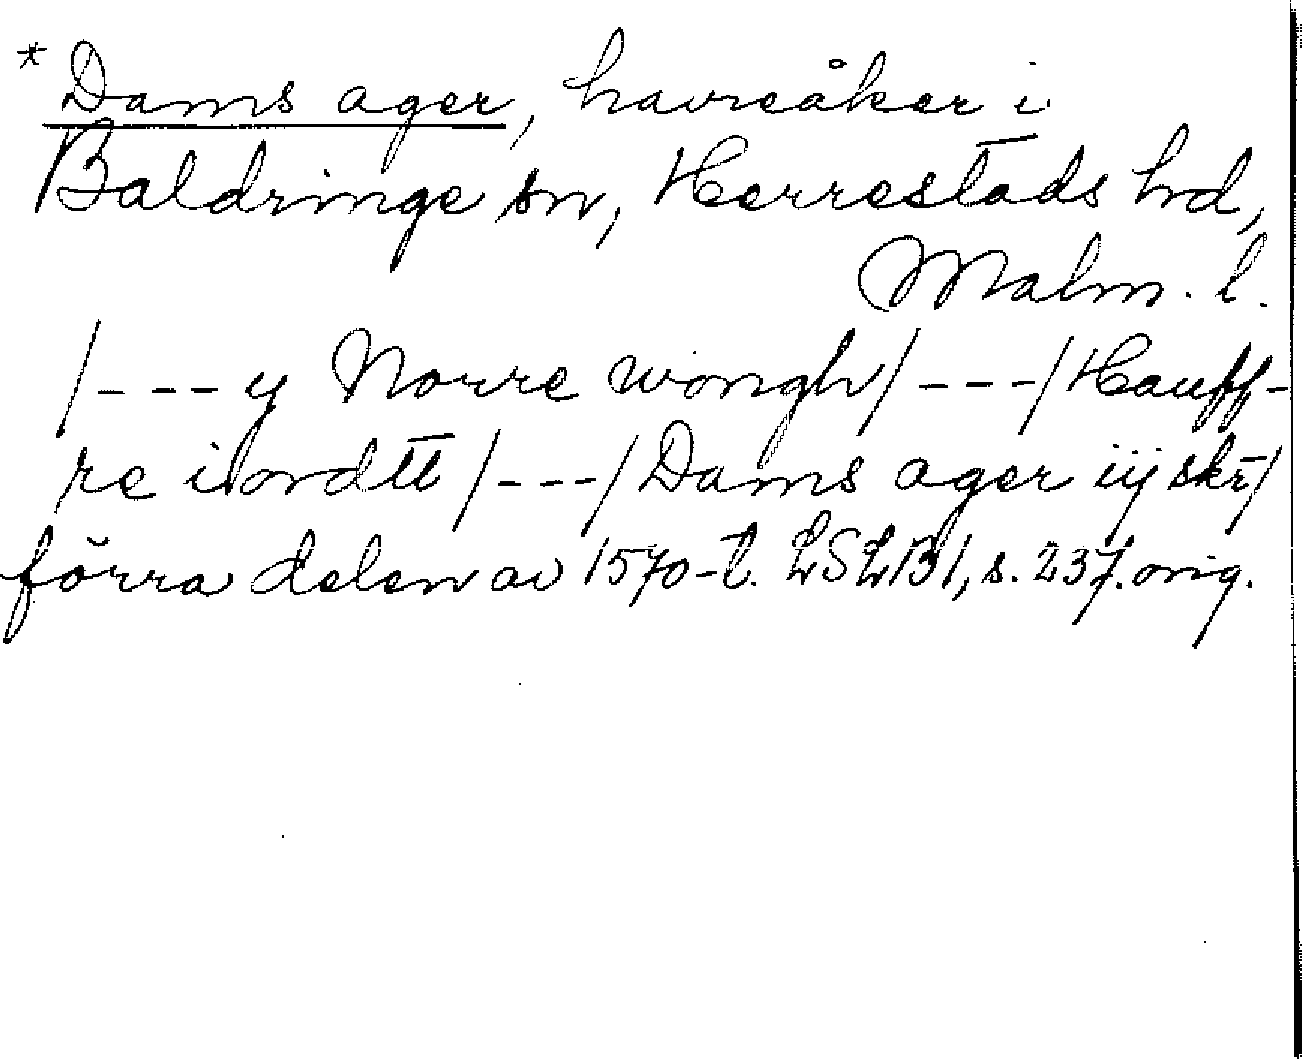 * Dams ager, havreåker i
Baldringe sn, Herrestads hd,
Malm. l.
/---y Norre wongh/---/Hauff-
re iordtt/---/Dams ager iij skr/
förra delen av 1570-t. LSLB1, s. 237. orig.